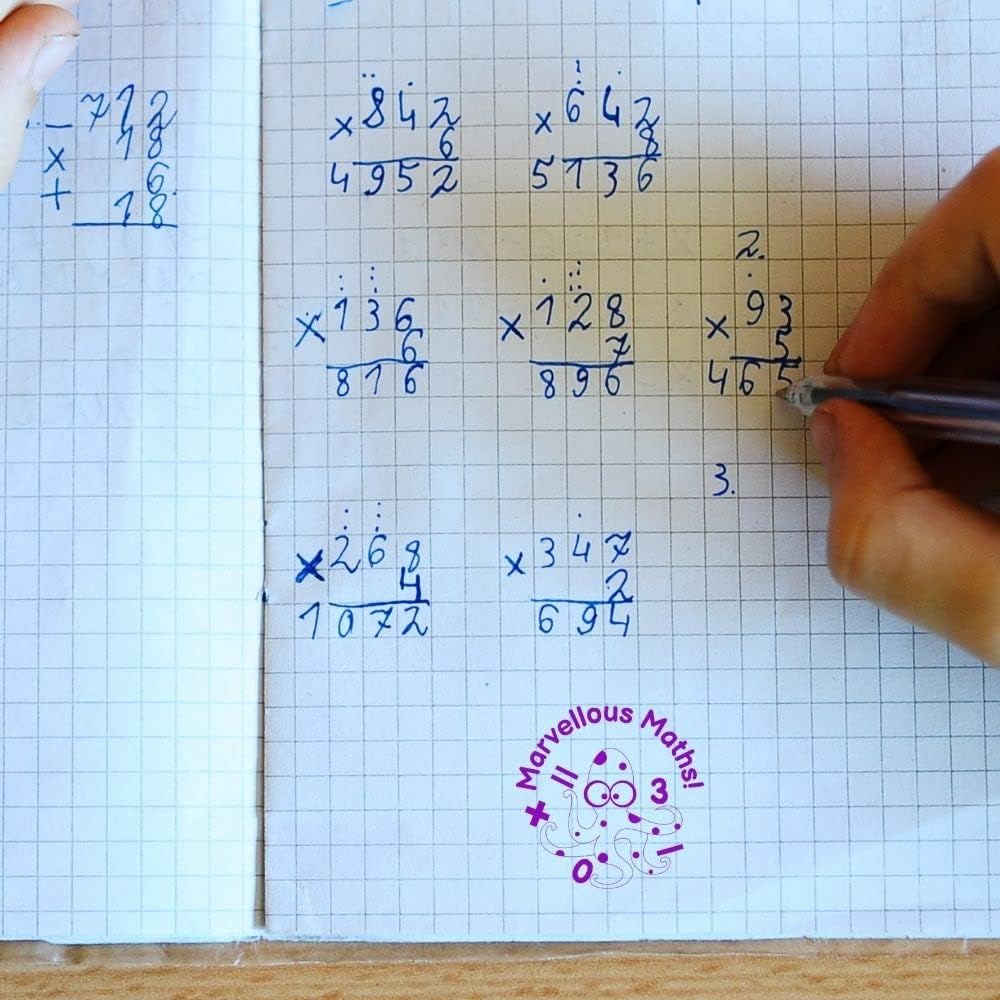 712
- 18
x 6
+ 18
x 842
6
4952
x 642
8
5136
x 136
6
816
x 128
7
896
2.
x 93
5
465
x 268
4
1072
x 347
2
694
3.
Marvellous Maths!
+ = 3 0 1